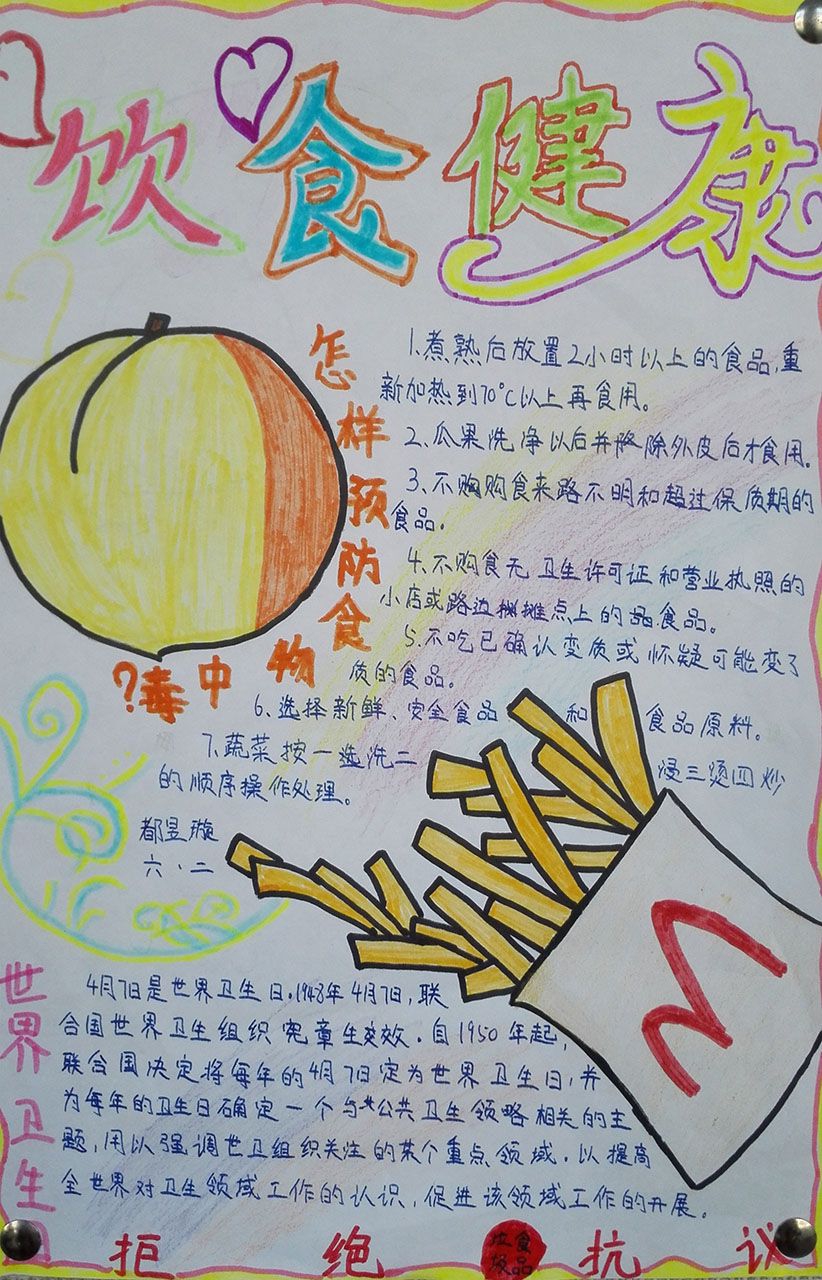 饮食健康
怎样预防食物中毒?
1.煮熟后放置2小时以上的食品,重
新加热到70°C以上再食用。
2、瓜果洗净以后并除外皮后才食用。
3、不购食来路不明和超过保质期的
食品。
4、不购食无卫生许可证和营业执照的
小店或路边摊点上的食品。
5、不吃已确认变质或怀疑可能变了
质的食品。
6、选择新鲜、安全食品和食品原料。
7、蔬菜按一选洗二浸三烫四炒
的顺序操作处理。
都昱璇
六·二
世界卫生日
4月7日是世界卫生日.1948年4月7日,联
合国世界卫生组织宪章生效.自1950年起,
联合国决定将每年的4月7日定为世界卫生日,并
为每年的卫生日确定一个与公共卫生领略相关的主
题,用以强调世卫组织关注的某个重点领域.以提高
全世界对卫生领域工作的认识,促进该领域工作的开展。
拒绝垃圾食品抗议